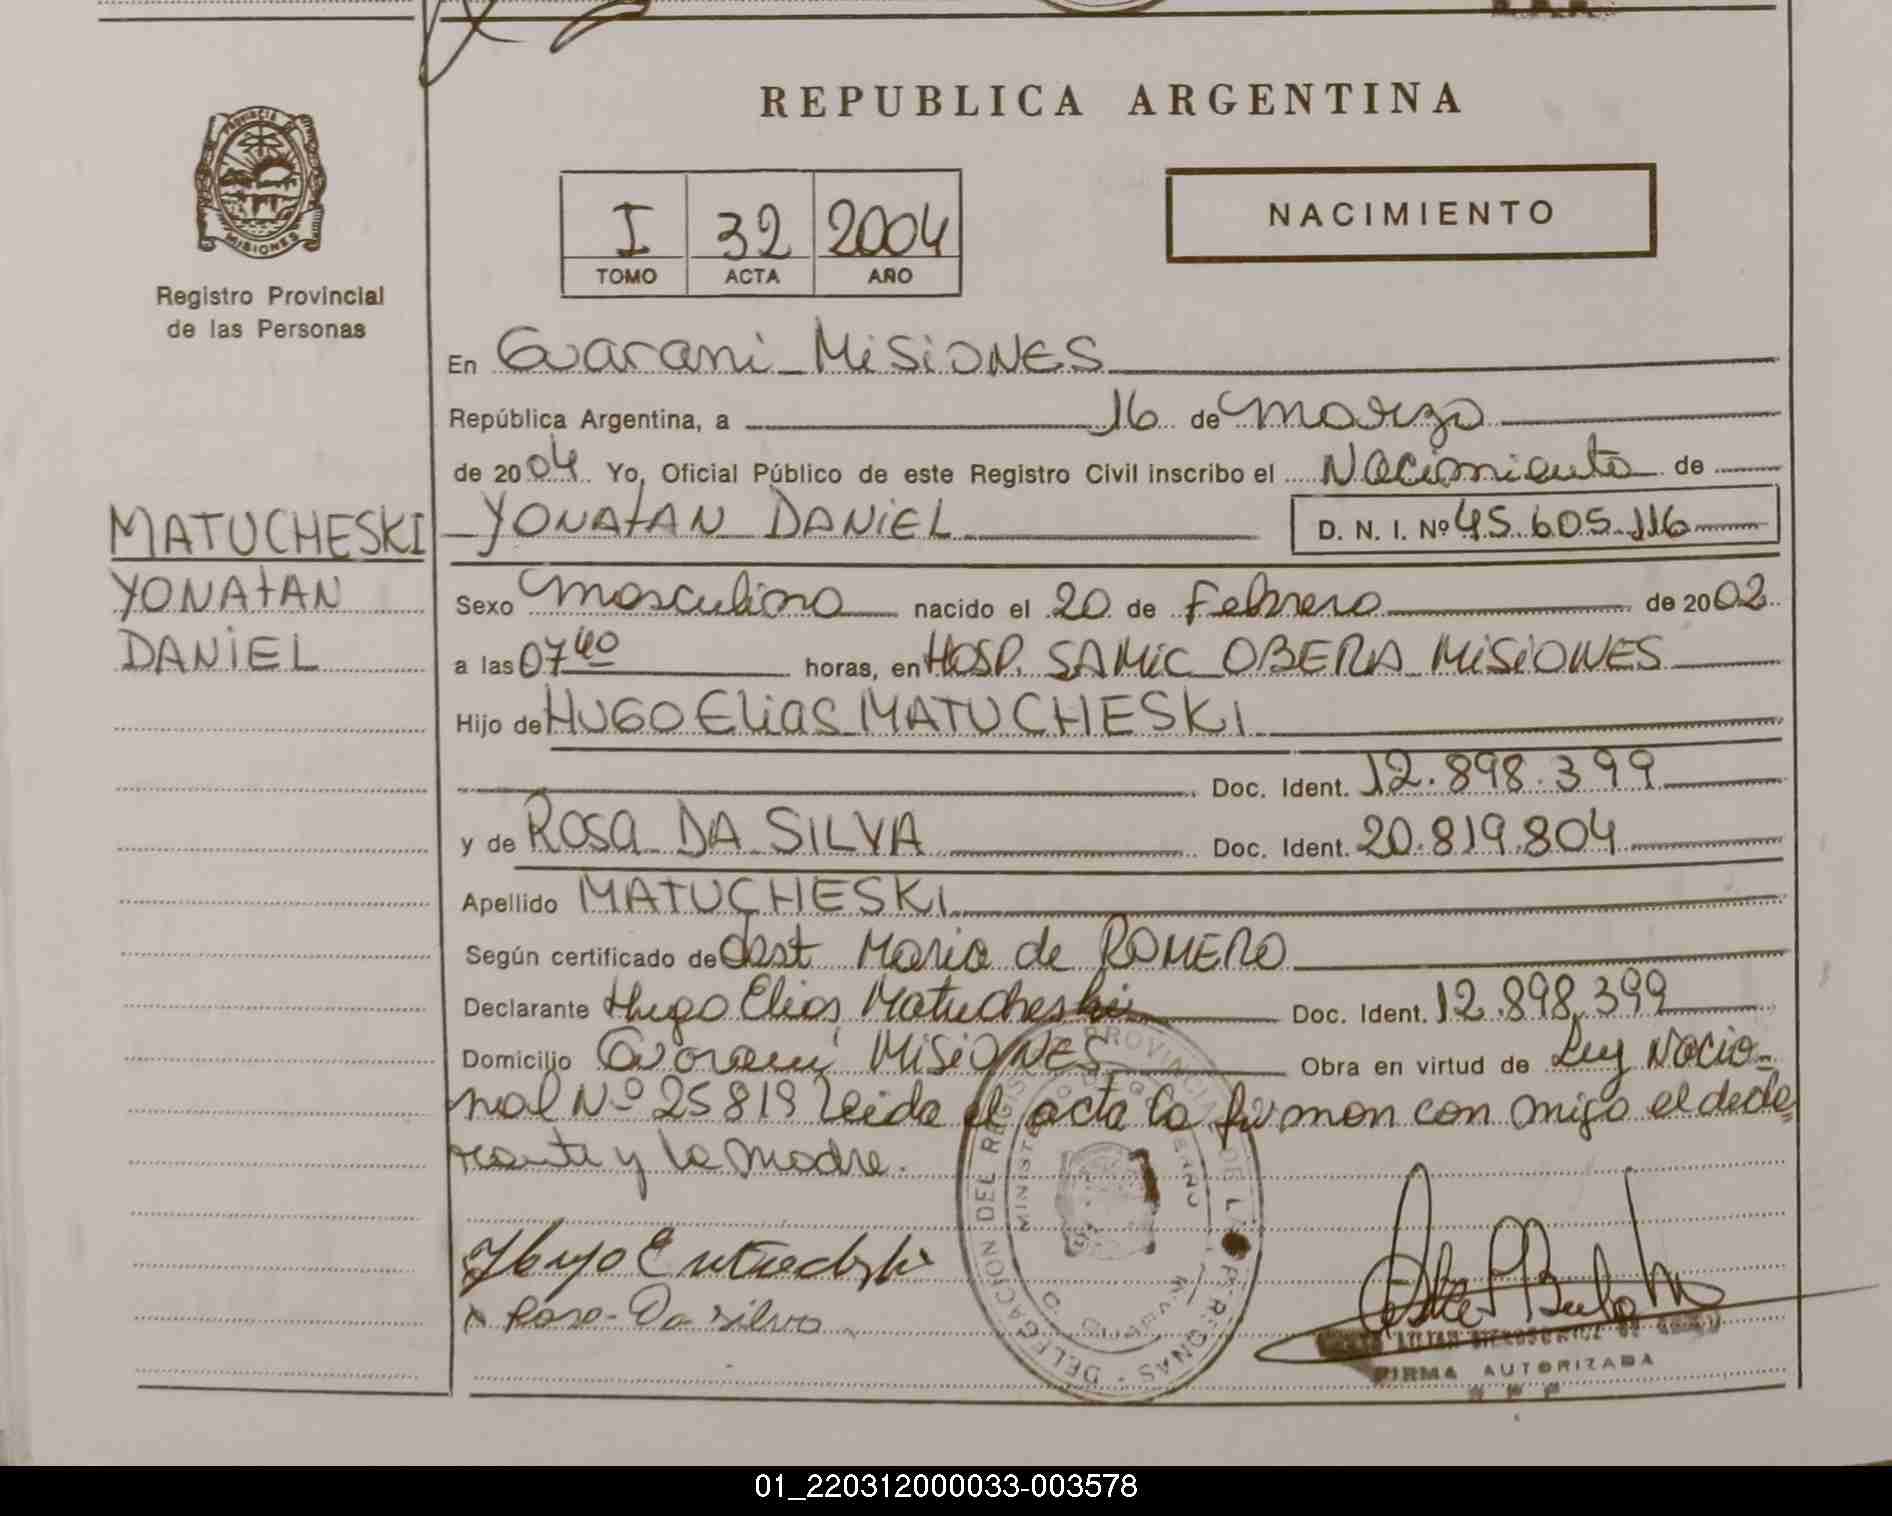 REPUBLICA ARGENTINA
PROVINCIA DE
MISIONES
Registro Provincial
de las Personas
I 32 2004
TOMO ACTA AÑO
NACIMIENTO
En Guarani Misiones
República Argentina, a 16 de marzo
de 2004 Yo, Oficial Público de este Registro Civil inscribo el Nacimiento de
MATUCHESKI
YONATAN
DANIEL
YONATAN DANIEL D. N. I. Nº 45.605.116
Sexo masculino nacido el 20 de Febrero de 2002
a las 07 40 horas, en HOSP. SAMIC OBERA MISIONES
Hijo de HUGO Elias MATUCHESKI
Doc. Ident. 12.898.399
y de ROSA DA SILVA Doc. Ident. 20.819.804
Apellido MATUCHESKI
Según certificado de Obst Maria de ROMERO
Declarante Hugo Elias Matucheski Doc. Ident. 12.898.399
Domicilio Guarani MISIONES Obra en virtud de Ley Nacio-
nal Nº 25819 Leida el acta la firman con migo el decla-
rante y la madre.
Rosa Da silva
DELEGACION DEL REGISTRO PROVINCIAL DE LAS PERSONAS
MINISTERIO DE GOBIERNO
FIRMA AUTORIZADA
01_220312000033-003578